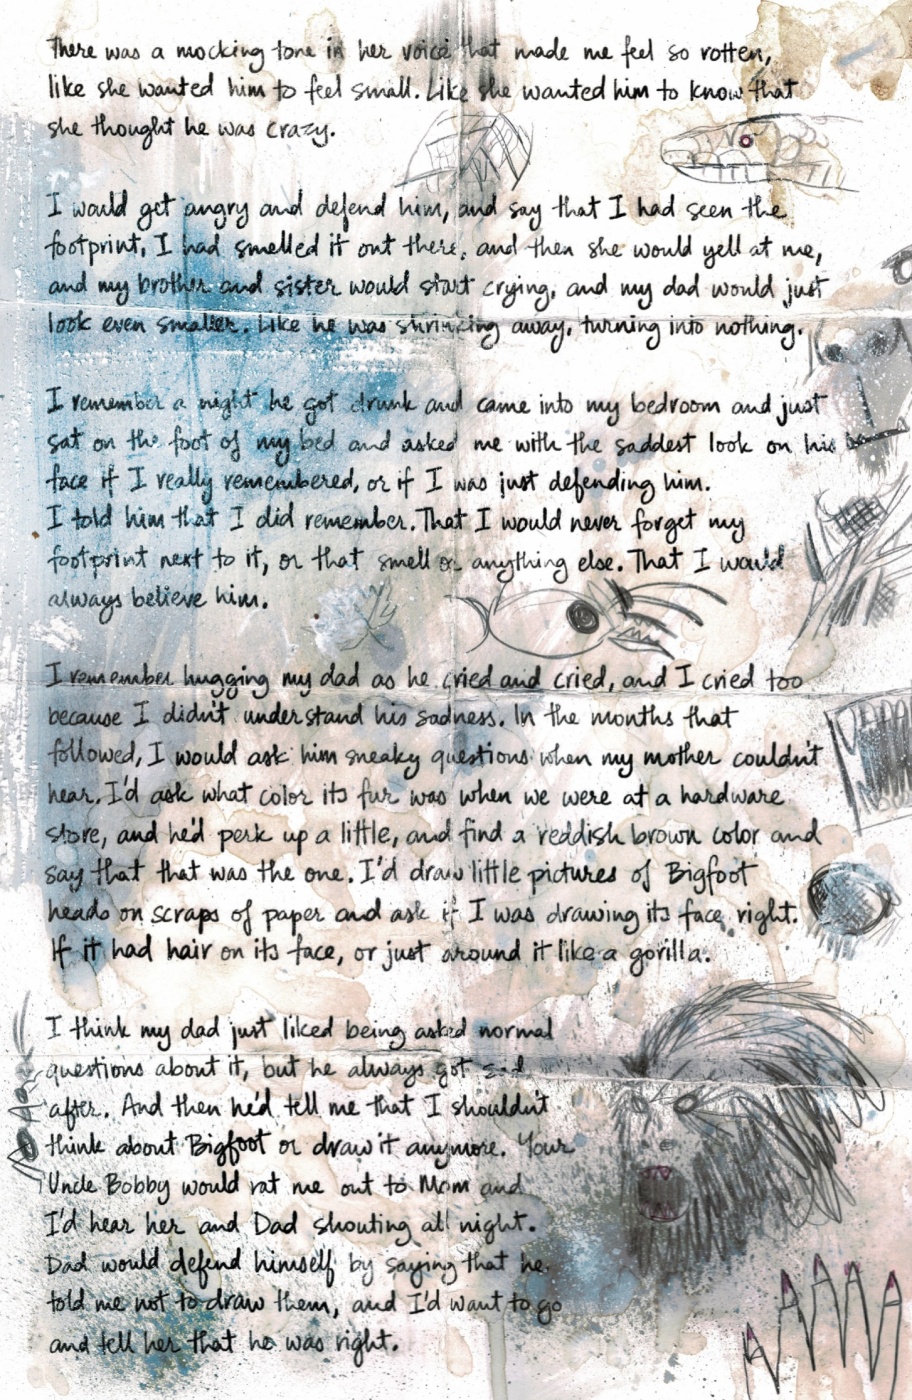 There was a mocking tone in her voice that made me feel so rotten,
like she wanted him to feel small. Like she wanted him to know that
she thought he was crazy.
I would get angry and defend him, and say that I had seen the
footprint, I had smelled it out there, and then she would yell at me,
and my brother and sister would start crying, and my dad would just
look even smaller. Like he was shrinking away, turning into nothing.
I remember a night he got drunk and came into my bedroom and just
sat on the foot of my bed and asked me with the saddest look on his
face if I really remembered, or if I was just defending him.
I told him that I did remember. That I would never forget my
footprint next to it, or that smell or anything else. That I would
always believe him.
I remember hugging my dad as he cried and cried, and I cried too
because I didn't understand his sadness. In the months that
followed, I would ask him sneaky questions when my mother couldn't
hear. I'd ask what color its fur was when we were at a hardware
store, and he'd perk up a little, and find a reddish brown color and
say that that was the one. I'd draw little pictures of Bigfoot
heads on scraps of paper and ask if I was drawing its face right.
If it had hair on its face, or just around it like a gorilla.
I think my dad just liked being asked normal
questions about it, but he always got sad
after. And then he'd tell me that I shouldn't
think about Bigfoot or draw it anymore. Your
Uncle Bobby would rat me out to Mom and
I'd hear her and Dad shouting all night.
Dad would defend himself by saying that he
told me not to draw them, and I'd want to go
and tell her that he was right.